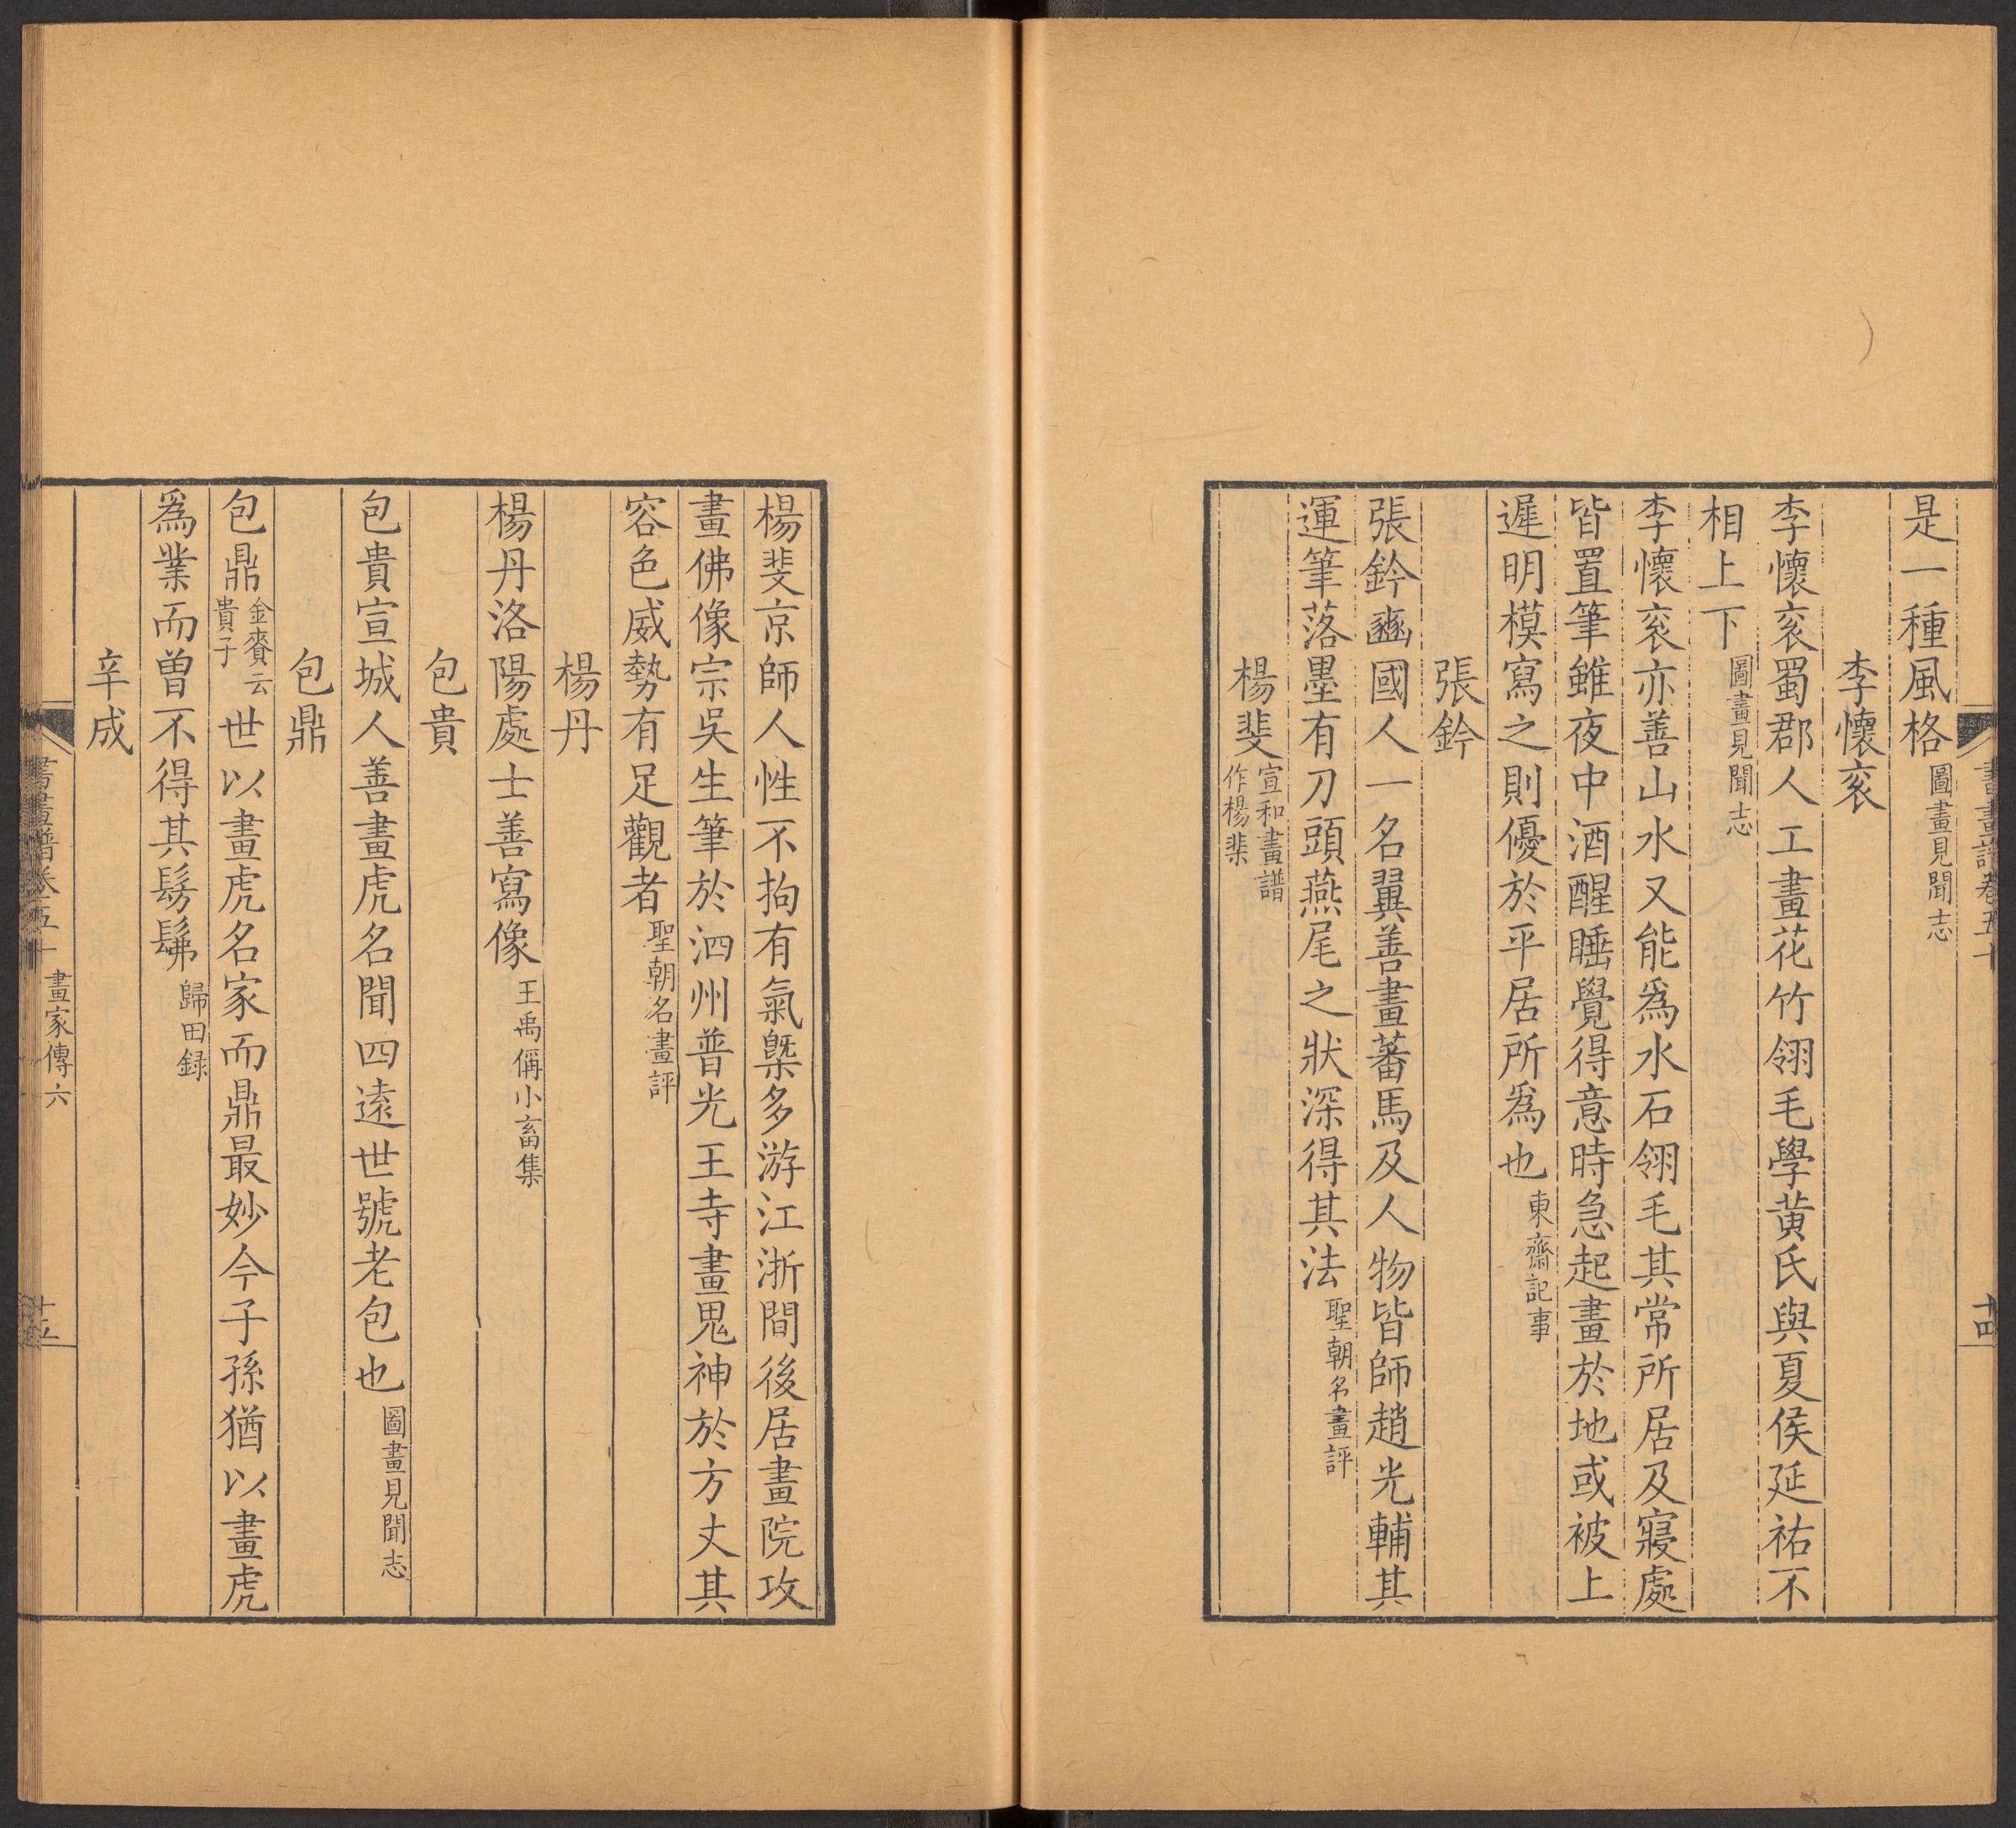 書畫譜卷五十
十四
是一種風格圖畫見聞志
李懷衮
李懷衮蜀郡人工畫花竹翎毛學黄氏與夏侯延祐不
相上下圖畫見聞志
李懷衮亦善山水又能爲水石翎毛其常所居及寢處
皆置筆雖夜中酒醒睡覺得意時急起畫於地或被上
遲明模寫之則優於平居所爲也東齋記事
張鈐
張鈐豳國人一名翼善畫蕃馬及人物皆師趙光輔其
運筆落墨有刀頭燕尾之狀深得其法聖朝名畫評
楊斐宣和畫譜
作楊棐
楊斐京師人性不拘有氣槩多游江浙間後居畫院攻
畫佛像宗吳生筆於泗州普光王寺畫鬼神於方丈其
容色威勢有足觀者聖朝名畫評
楊丹
楊丹洛陽處士善寫像王禹偁小畜集
包貴
包貴宣城人善畫虎名聞四遠世號老包也圖畫見聞志
包鼎
包鼎金賚云
貴子世以畫虎名家而鼎最妙今子孫猶以畫虎
爲業而曾不得其髣髴歸田録
辛成
書畫譜卷五十
畫家傳六
十五